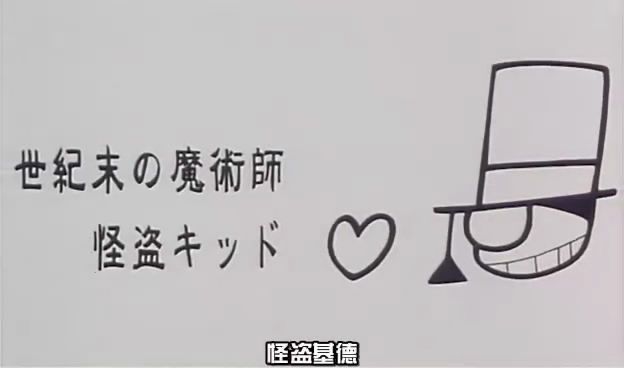 世紀末の魔術師
怪盗キッド
怪盗基德